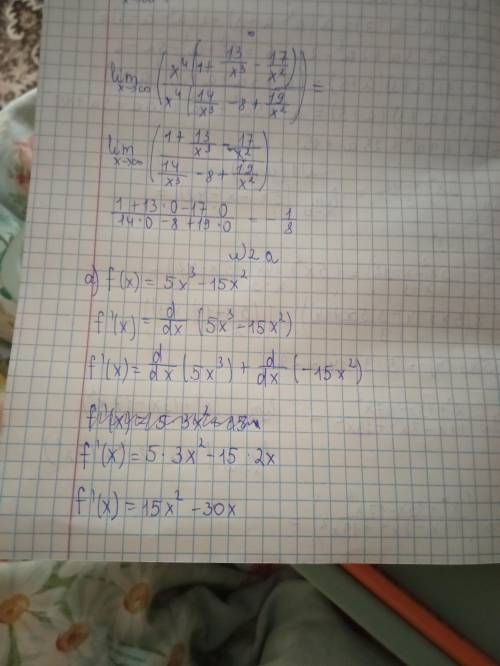 lim x→∞ (x⁴(1+ 13/x³ - 17/x²) / x⁴(14/x³ -8+ 19/x²)) =
lim x→∞ (1+ 13/x³ - 17/x² / 14/x³ -8+ 19/x²)
1+13·0-17·0 / 14·0-8+19·0 = - 1/8
№2 а
а) f(x) = 5x³-15x²
f'(x) = d/dx (5x³-15x²)
f'(x) = d/dx (5x³) + d/dx (-15x²)
f'(x) = 5·3x²-15·2x
f'(x) = 15x²-30x